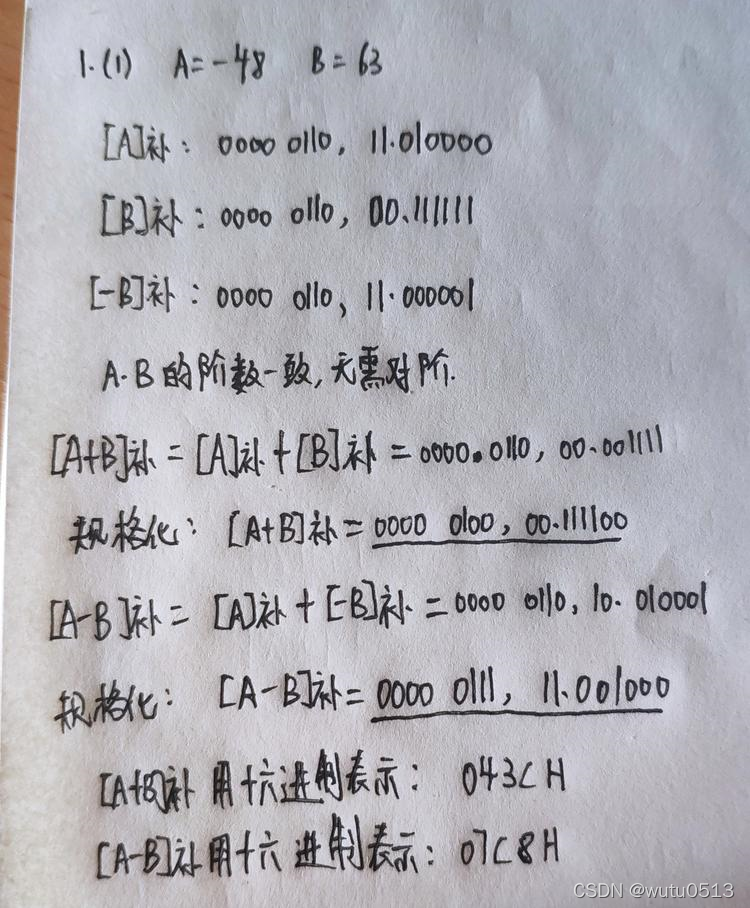 1.(1) A=-48 B=63
[A]补: 0000 0110, 11.010000
[B]补: 0000 0110, 00.111111
[-B]补: 0000 0110, 11.000001
A.B的阶数一致,无需对阶.
[A+B]补=[A]补+[B]补=0000.0110, 00.001111
规格化: [A+B]补=0000 0100, 00.111100
[A-B]补= [A]补+[-B]补=0000 0110, 10.010001
规格化: [A-B]补=0000 0111, 11.001000
[A+B]补用十六进制表示: 043C H
[A-B]补用十六进制表示: 07C8H
CSDN @wutu0513